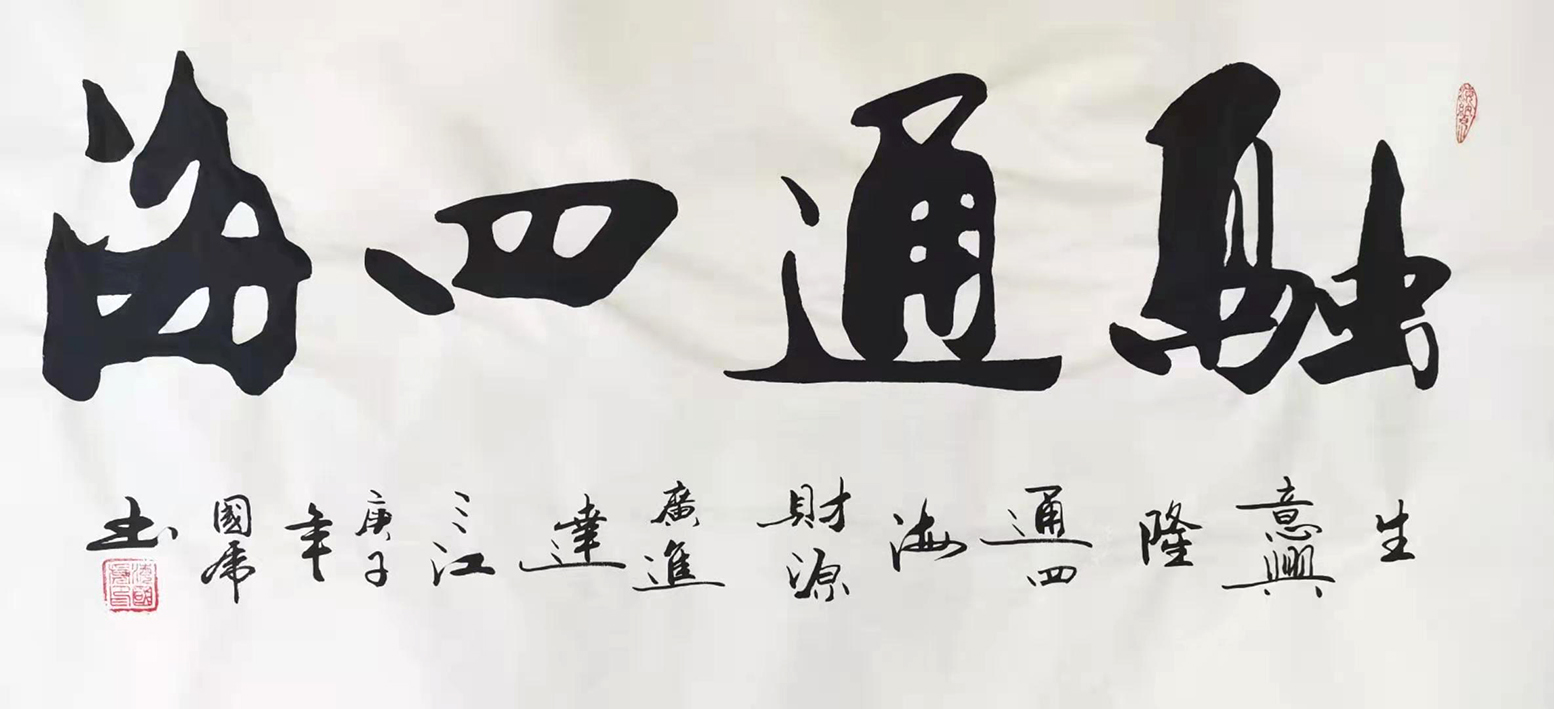 融通四海
生意興隆通四海財源廣進達三江庚子年國虎書